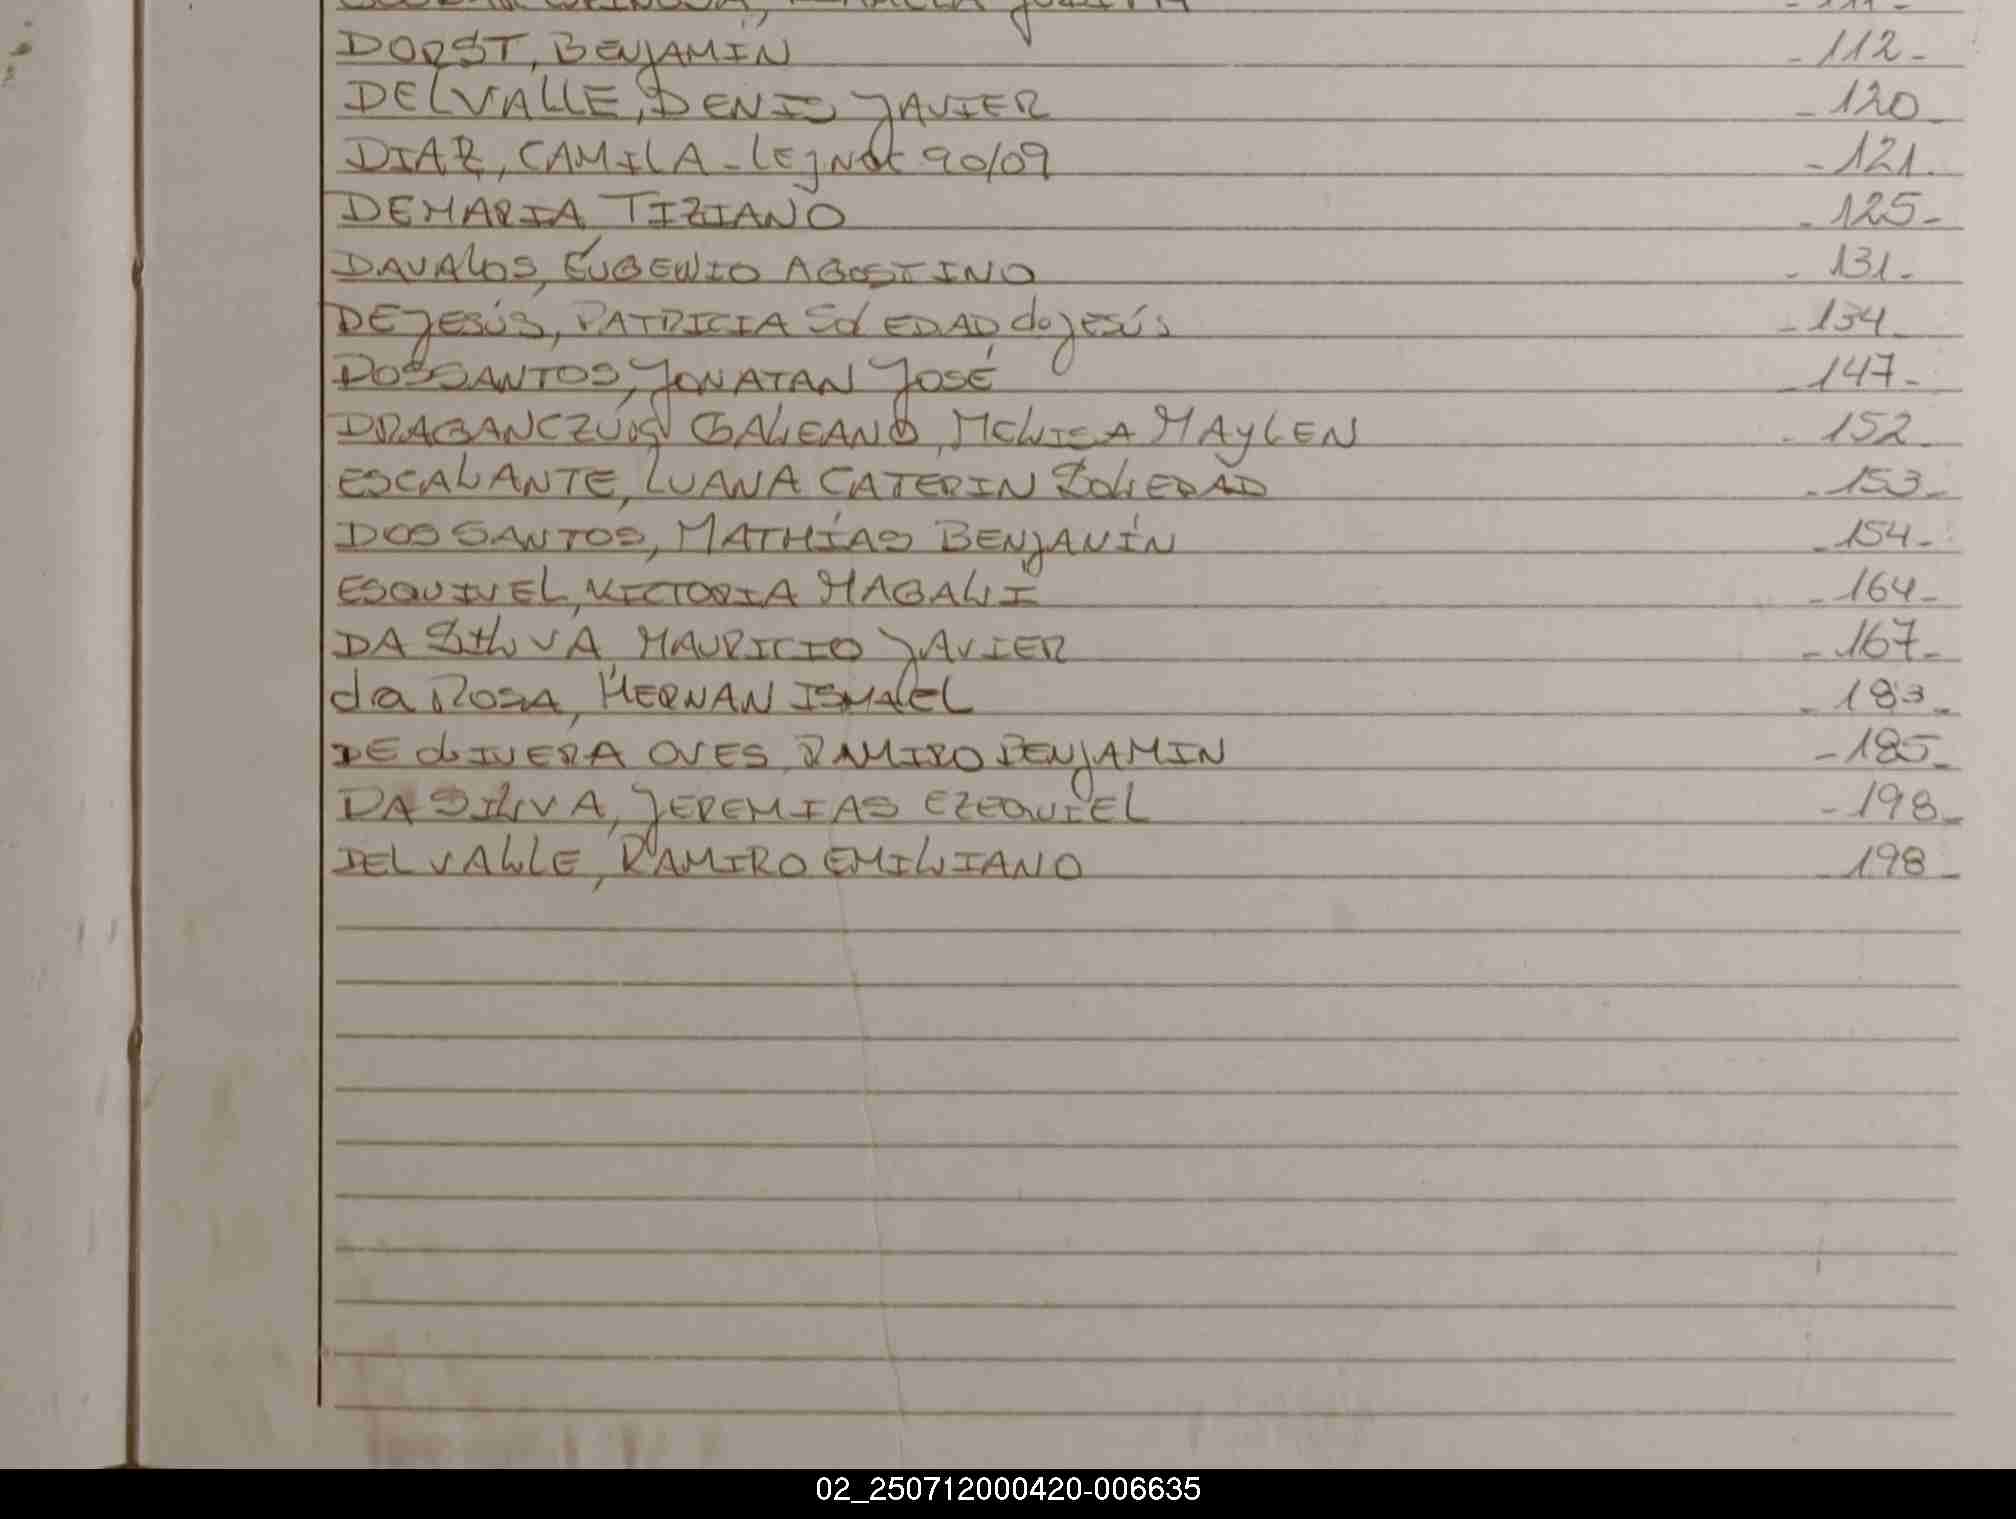 DORST, BENJAMÍN -112-
DELVALLE, DENIS JAVIER -120-
DIAZ, CAMILA - Lej Not 90/09 -121-
DEMARIA, TIZIANO -125-
DAVALOS, EUGENIO AGOSTINO -131-
DE JESÚS, PATRICIA SOLEDAD de JESÚS -134-
DOS SANTOS, JONATAN JOSÉ -147-
GALEANO, MELISA MAYLEN -152-
ESCALANTE, LUANA CATERIN SOLEDAD -153-
DOS SANTOS, MATHÍAS BENJAMÍN -154-
ESQUIVEL, VICTORIA MAGALI -164-
DA SILVA, MAURICIO JAVIER -167-
da ROSA, HERNAN ISMAEL -183-
DE OLIVERA OVES, RAMIRO BENJAMIN -185-
DA SILVA, JEREMIAS EZEQUIEL -198-
DEL VALLE, RAMIRO EMILIANO -198-
02_250712000420-006635